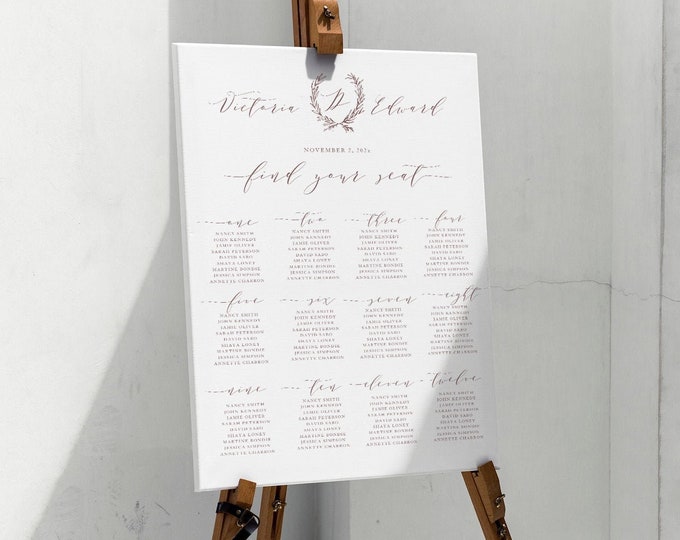 Victoria D Edward
NOVEMBER 2, 2024
find your seat
one
NANCY SMITH
JOHN KENNEDY
JAMIE OLIVER
SARAH PETERSON
DAVID SABO
SHAYA LONEY
MARTINE BONDIE
JESSICA SIMPSON
ANNETTE CHARRON
two
NANCY SMITH
JOHN KENNEDY
JAMIE OLIVER
SARAH PETERSON
DAVID SABO
SHAYA LONEY
MARTINE BONDIE
JESSICA SIMPSON
ANNETTE CHARRON
three
NANCY SMITH
JOHN KENNEDY
JAMIE OLIVER
SARAH PETERSON
DAVID SABO
SHAYA LONEY
MARTINE BONDIE
JESSICA SIMPSON
ANNETTE CHARRON
four
NANCY SMITH
JOHN KENNEDY
JAMIE OLIVER
SARAH PETERSON
DAVID SABO
SHAYA LONEY
MARTINE BONDIE
JESSICA SIMPSON
ANNETTE CHARRON
five
NANCY SMITH
JOHN KENNEDY
JAMIE OLIVER
SARAH PETERSON
DAVID SABO
SHAYA LONEY
MARTINE BONDIE
JESSICA SIMPSON
ANNETTE CHARRON
six
NANCY SMITH
JOHN KENNEDY
JAMIE OLIVER
SARAH PETERSON
DAVID SABO
SHAYA LONEY
MARTINE BONDIE
JESSICA SIMPSON
ANNETTE CHARRON
seven
NANCY SMITH
JOHN KENNEDY
JAMIE OLIVER
SARAH PETERSON
DAVID SABO
SHAYA LONEY
MARTINE BONDIE
JESSICA SIMPSON
ANNETTE CHARRON
eight
NANCY SMITH
JOHN KENNEDY
JAMIE OLIVER
SARAH PETERSON
DAVID SABO
SHAYA LONEY
MARTINE BONDIE
JESSICA SIMPSON
ANNETTE CHARRON
nine
NANCY SMITH
JOHN KENNEDY
JAMIE OLIVER
SARAH PETERSON
DAVID SABO
SHAYA LONEY
MARTINE BONDIE
JESSICA SIMPSON
ANNETTE CHARRON
ten
NANCY SMITH
JOHN KENNEDY
JAMIE OLIVER
SARAH PETERSON
DAVID SABO
SHAYA LONEY
MARTINE BONDIE
JESSICA SIMPSON
ANNETTE CHARRON
eleven
NANCY SMITH
JOHN KENNEDY
JAMIE OLIVER
SARAH PETERSON
DAVID SABO
SHAYA LONEY
MARTINE BONDIE
JESSICA SIMPSON
ANNETTE CHARRON
twelve
NANCY SMITH
JOHN KENNEDY
JAMIE OLIVER
SARAH PETERSON
DAVID SABO
SHAYA LONEY
MARTINE BONDIE
JESSICA SIMPSON
ANNETTE CHARRON